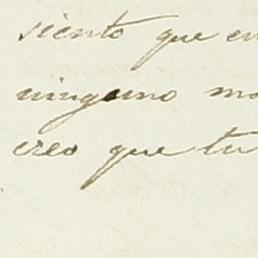 siento que en
ninguno mo
creo que tu